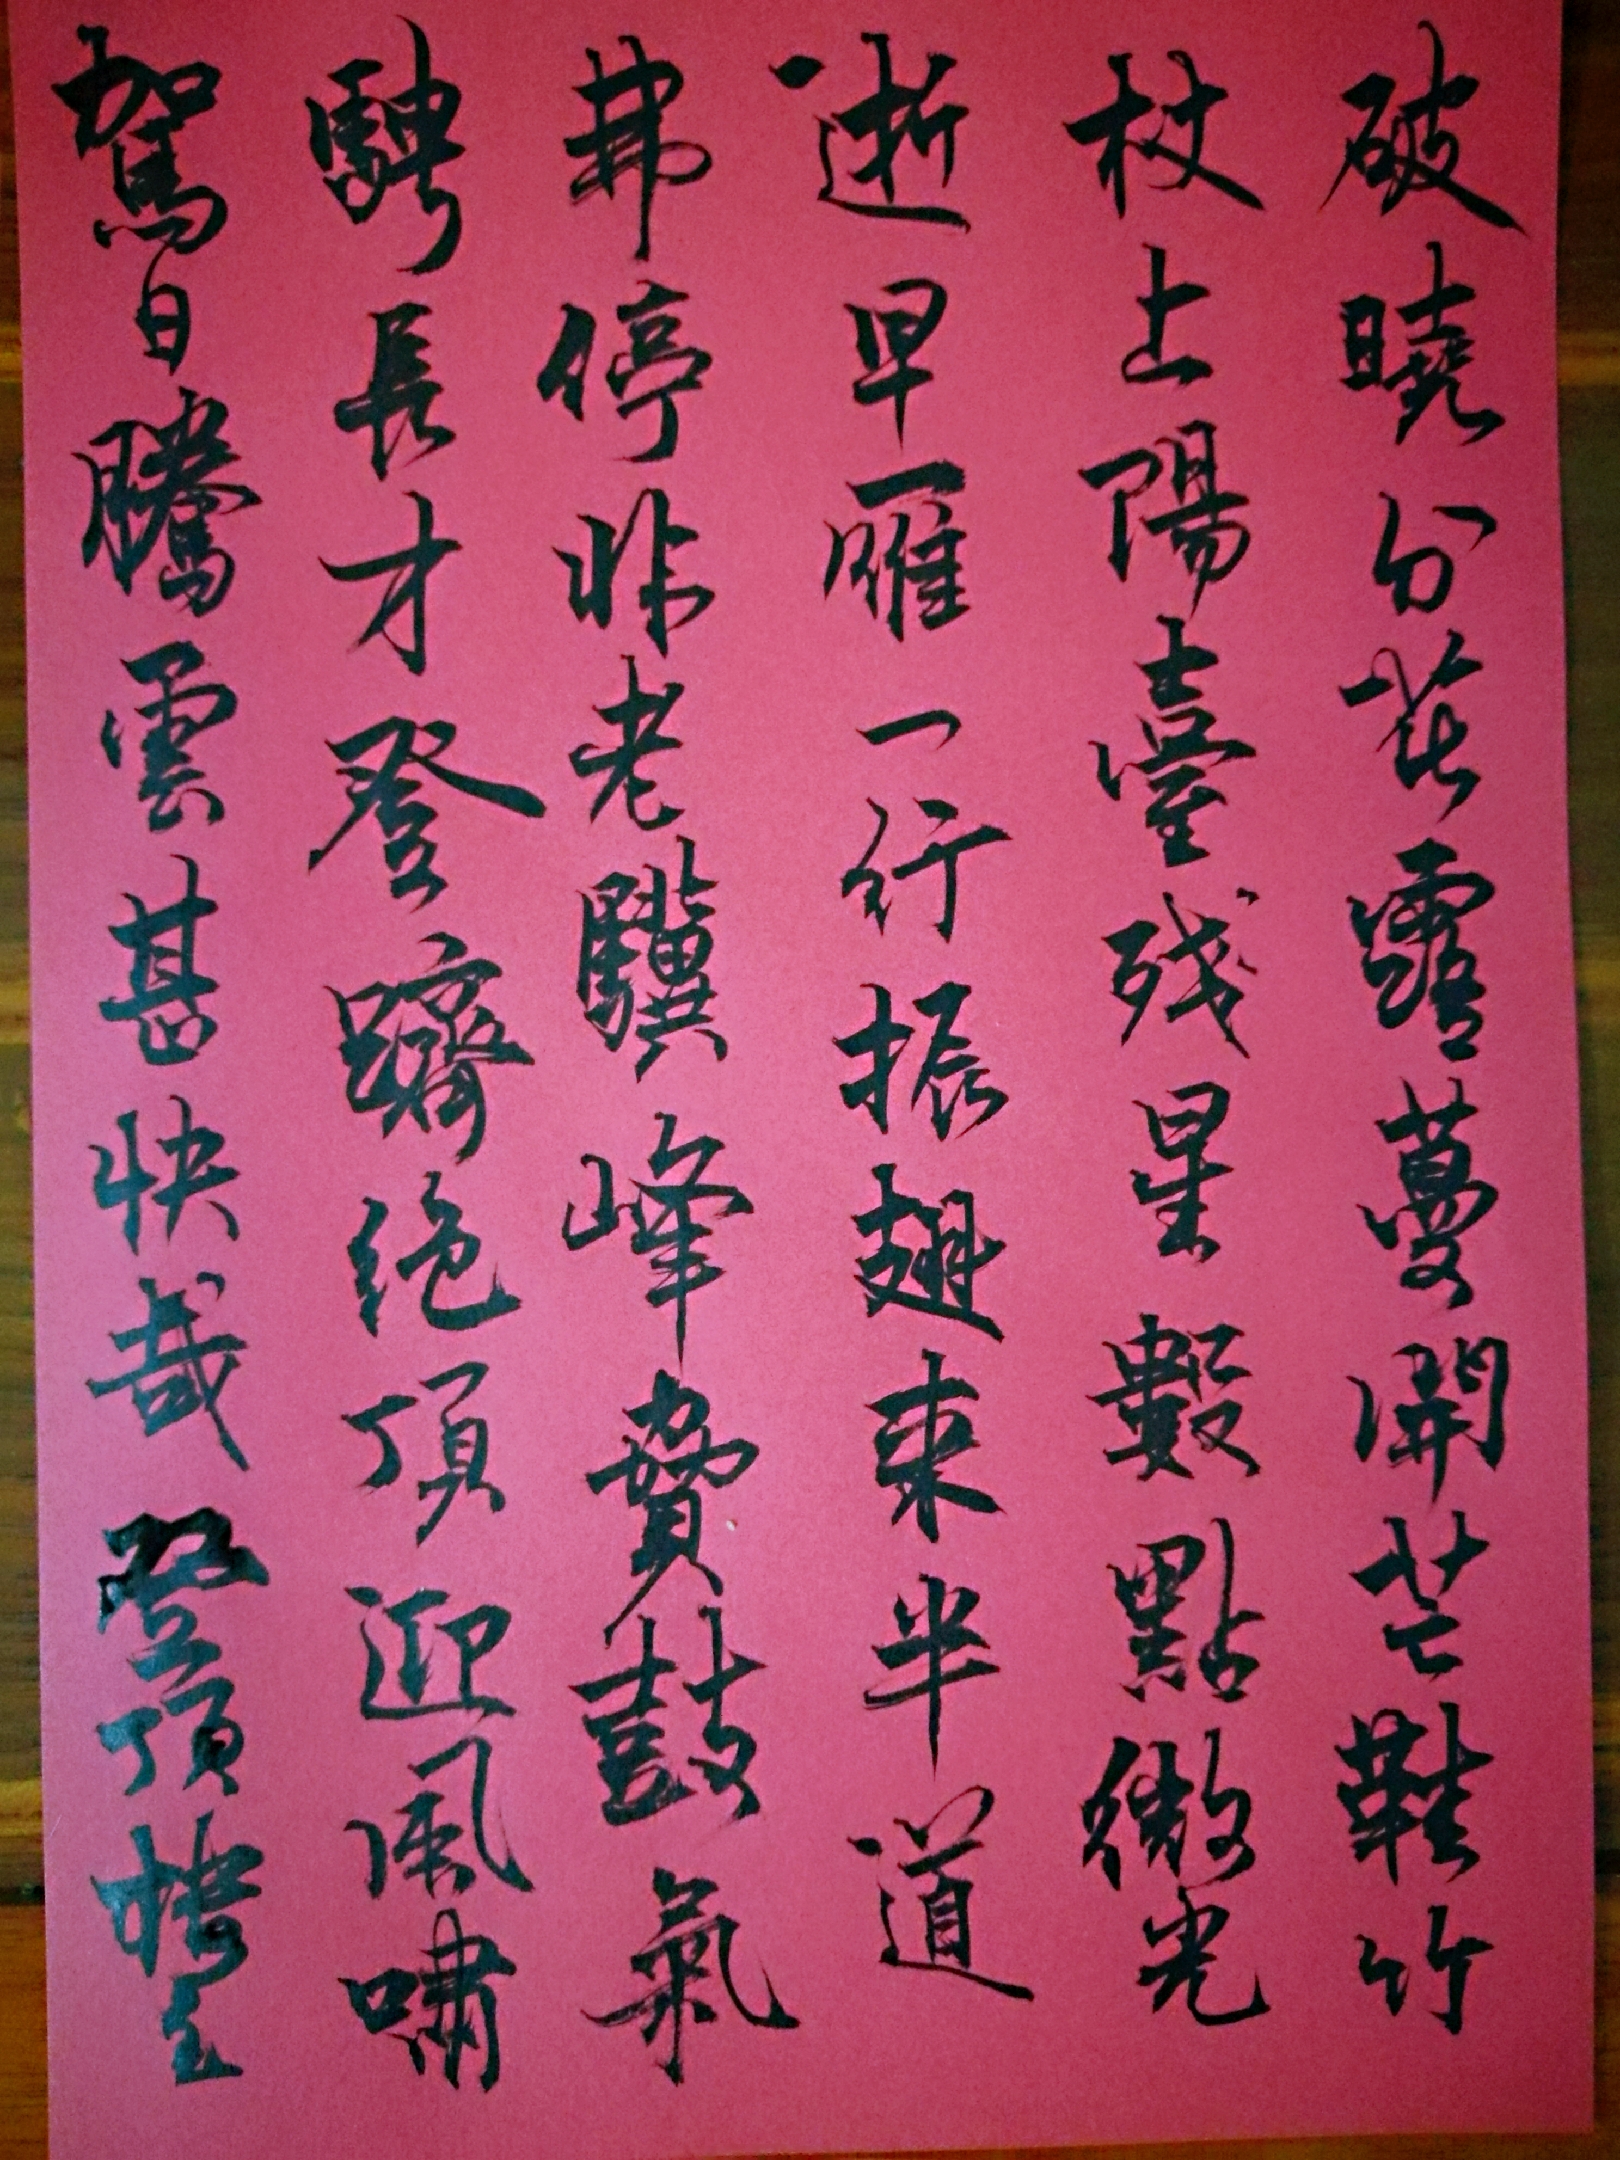 破曉分花露蔓開芒鞋竹
杖上陽臺残星數點微光
逝早雁一行振翅來半道
弗停非老驥峰賁鼓氣
騁長才登躋绝頂迎風嘯
駕日騰雲甚快哉登頂